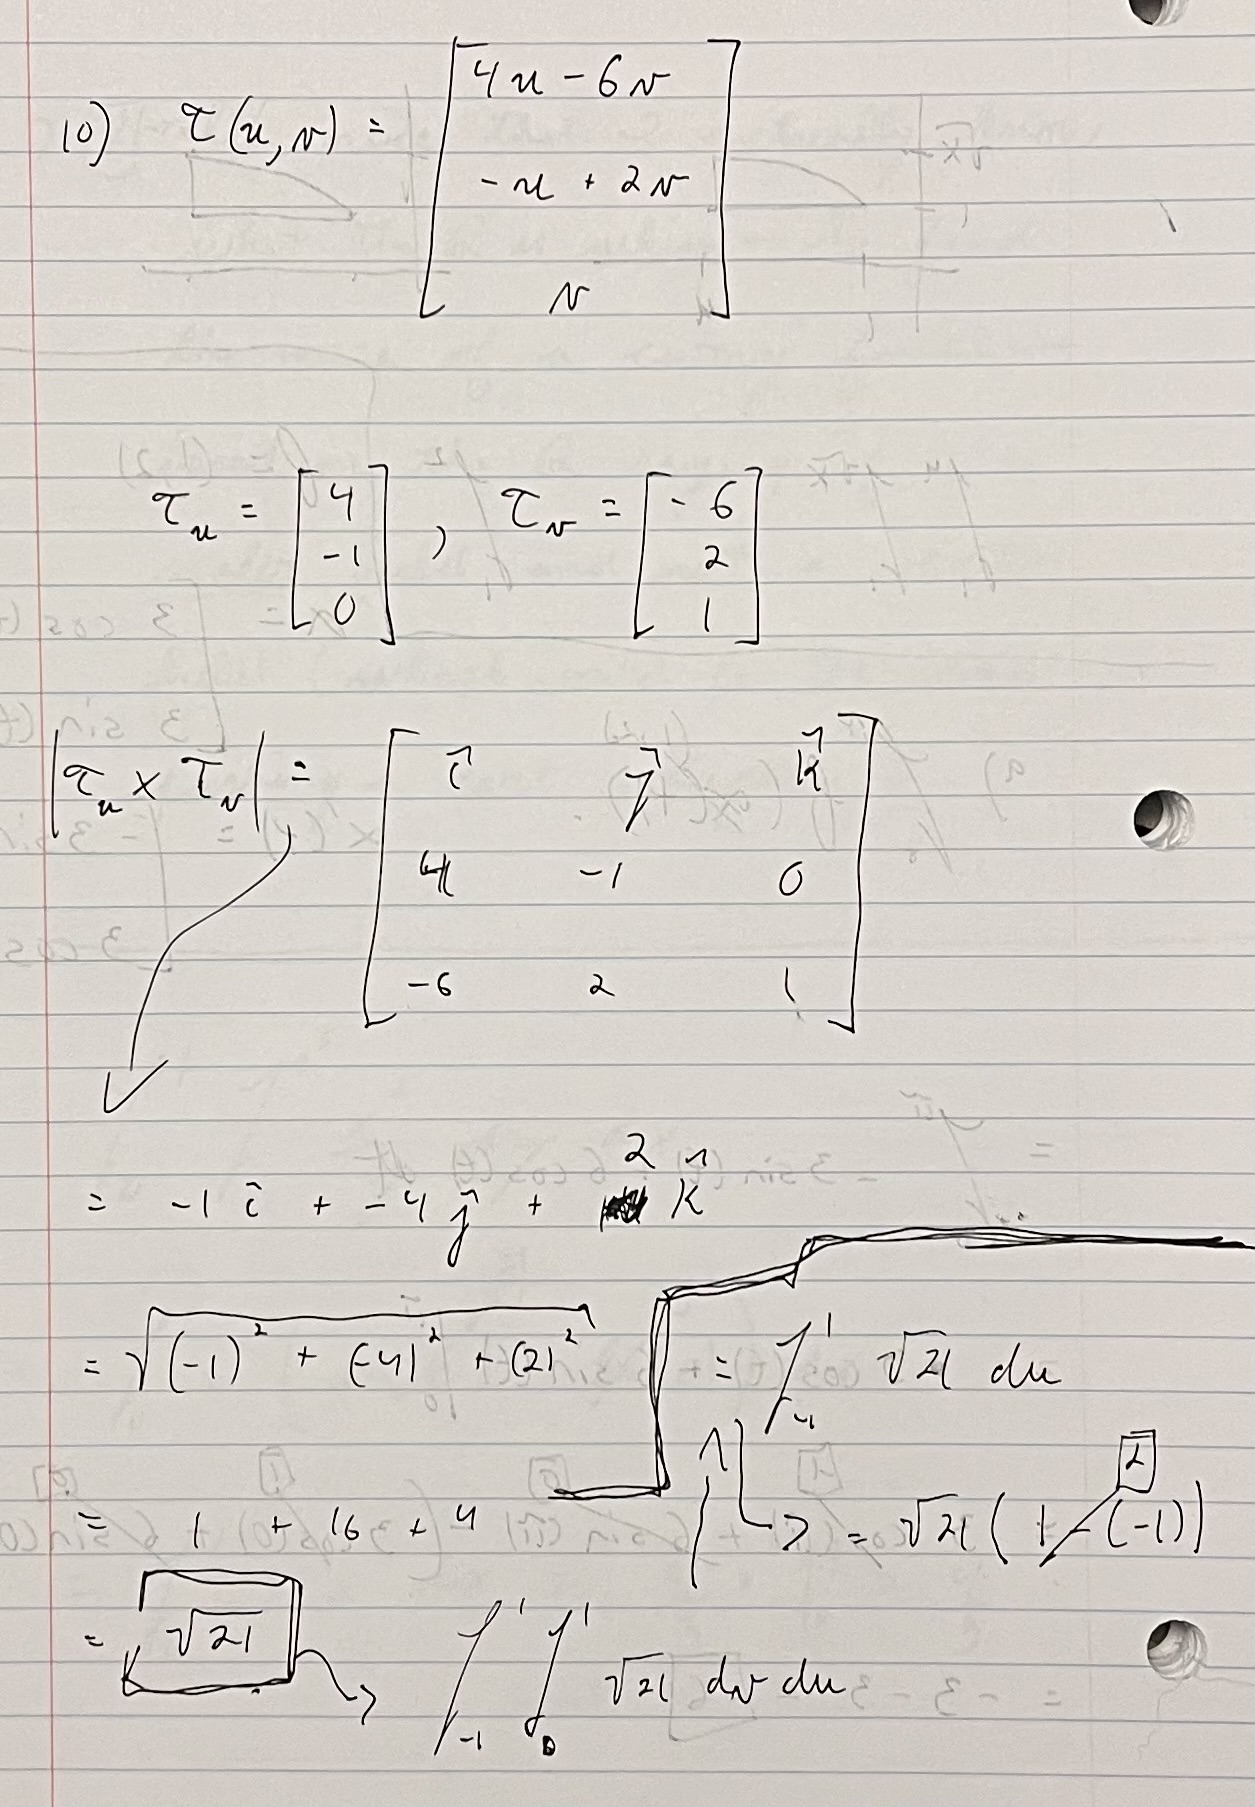 10) τ(u,v) = [4u - 6v
-u + 2v
v]
τ_u = [4 -1 0], τ_v = [-6 2 1]
|τ_u × τ_v| = [i⃗ j⃗ k⃗
4 -1 0
-6 2 1]
= -1 î + -4 ĵ + 2 k̂
= √((-1)² + (-4)² + (2)²)
= 1 + 16 + 4
= √21
→ ∫₋₁¹ ∫₀¹ √21 dv du
= ∫₋₁¹ √21 du
→ = √21 (1 - (-1))
2